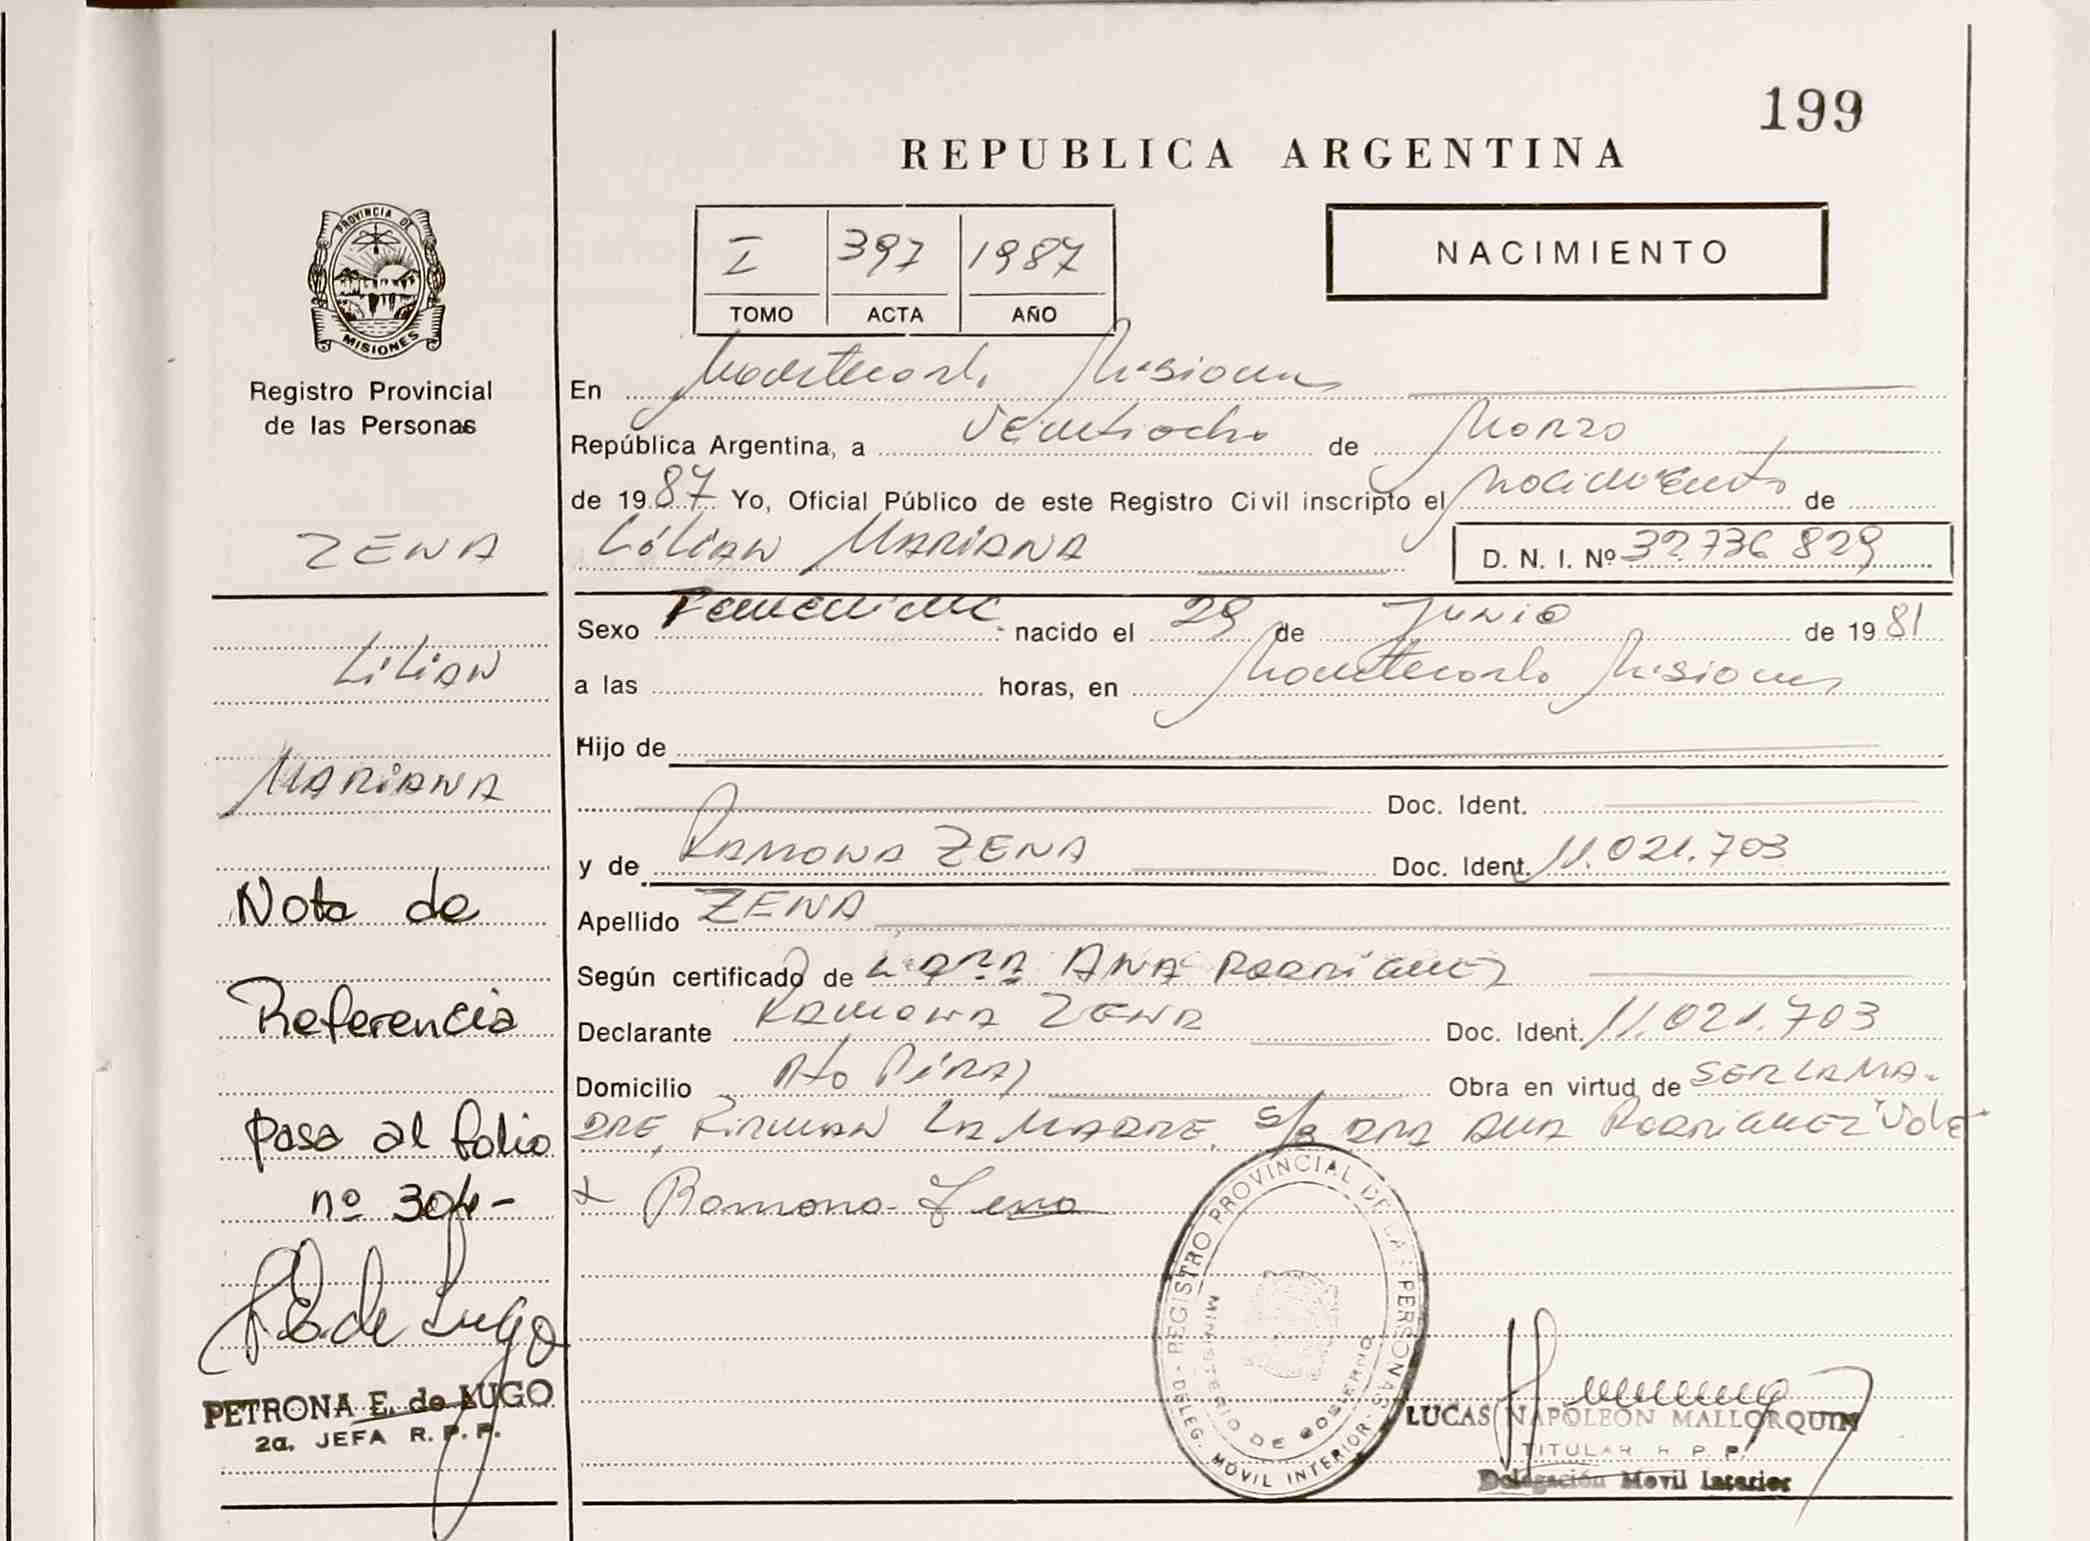 199
REPUBLICA ARGENTINA
PROVINCIA DE
MISIONES
Registro Provincial
de las Personas
I 397 1987
TOMO ACTA AÑO
NACIMIENTO
En Montecarlo Misiones
República Argentina, a Veintiocho de Marzo
de 1987 Yo, Oficial Público de este Registro Civil inscripto el nacimiento de
ZENA
Lilian MARIANA D. N. I. Nº 32.736 829
Sexo Femenino nacido el 29 de Junio de 1981
Lilian
a las horas, en Montecarlo Misiones
Hijo de
MARIANA
Doc. Ident.
y de RAMONA ZENA Doc. Ident. 11.021.703
Nota de
Apellido ZENA
Según certificado de ANA RODRIGUEZ
Referencia
Declarante RAMONA ZENA Doc. Ident. 11.021.703
Domicilio Pto Piray Obra en virtud de SER LA MA-
pasa al folio
DRE, FIRMAN LA MADRE, S/ DRA ANA RODRIGUEZ Vale
nº 304-
x Ramona Zena
P E de Lugo
PETRONA E. de LUGO
2a. JEFA R. P. P.
REGISTRO PROVINCIAL DE LAS PERSONAS
MINISTERIO DE GOBIERNO
DELEG. MOVIL INTERIOR
LUCAS NAPOLEON MALLORQUIN
TITULAR R. P. P.
Delegación Movil Interior